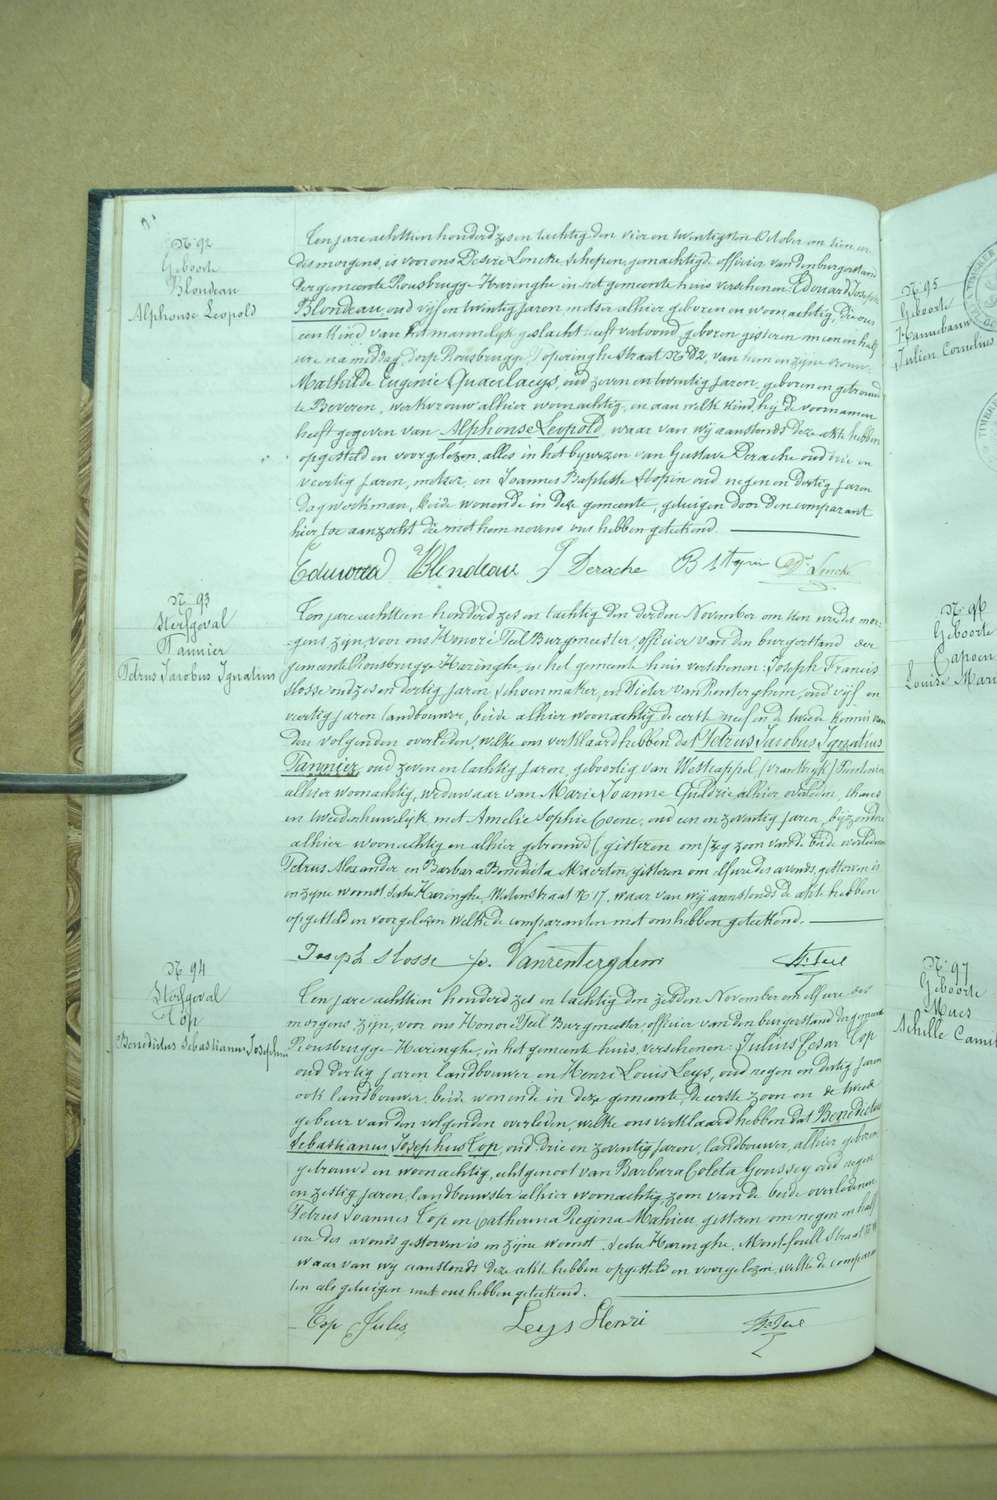 N° 92
Geboorte
Blondeau
Alphonse Leopold
Ten jare achttien honderd zes en tachtig den vier en twintigsten October om tien ure
des morgens, is voor ons Desiré Loncke, schepen, gemachtigde officier van den burgerstand
der gemeente Rousbrugge-Haringhe in het gemeente huis verschenen: Edouard Joseph
Blondeau, oud vijf en twintig jaren, metser alhier geboren en woonachtig, die ons
een kind van het mannelijk geslacht heeft vertoond, geboren gisteren
ure namiddag, dorp Rousbrugge, Poperinghestraat N° 82, van hem en zijne vrouw
Mathilde Eugenie Quaeelaeys, oud zeven en twintig jaren, geboren en getrouwd
te Beveren, werkvrouw alhier woonachtig, en aan welk kind hij de voornamen
heeft gegeven van Alphonse Leopold, waar van wij aanstonds deze akte hebben
opgesteld en voorgelezen, alles in het bijwezen van Gustave Derache oud drie en
veertig jaren, metser, en Joannes Baptiste Stopin oud negen en dertig jaren
dagwerkman, beide wonende in deze gemeente, getuigen door den comparant
hier toe aanzocht die met hem nevens ons hebben geteekend.
Eduward Blondeau G Derache B Stopin Dr Loncke
N° 93
Sterfgeval
Tannier
Petrus Jacobus Ignatius
Ten jare achttien honderd zes en tachtig den derden November om tien ure des mor-
gens zijn voor ons Honoré Teil Burgmeester, officier van den burgerstand der
gemeente Rousbrugge-Haringhe in het gemeente huis verschenen: Joseph Francis
Slosse oud zes en dertig jaren schoenmaker, en Pieter Van Renterghem, oud vijf en
veertig jaren landbouwer, beide alhier woonachtig de eerste neef en de tweede kennis van
den volgenden overleden, welke ons verklaard hebben dat Petrus Jacobus Ignatius
Tannier, oud zeven en tachtig jaren, geboortig van Westcappel (Vrankrijk)
alhier woonachtig, weduwaar van Marie Joanne Guldrie, alhier overleden,
en tweederhuwelijk met Amelie Sophie Coene, oud een en zeventig jaren, bijzondere
alhier woonachtig en alhier getrouwd (gisteren om) zeg zoon van de beide overledenen
Petrus Alexander, en Barbara Benedicta Maerten, gisteren om elf ure des avonds, gestorven is
in zijne woonst sectie Haringhe, Molenstraat N° 17, waar van wij aanstonds de akte hebben
opgesteld en voorgelezen welke de comparanten met ons hebben geteekend.
Joseph Slosse p. Vanrenterghem H. Teil
N° 94
Sterfgeval
Top
Benedictus Sebastianus Josephus
Ten jare achttien honderd zes en tachtig den zesden November om elf ure des
morgens zijn, voor ons Honoré Teil Burgmeester, officier van den burgerstand der gemeente
Rousbrugge-Haringhe, in het gemeente huis, verschenen: Julius Cesar Top
oud dertig jaren landbouwer en Henri Louis Leys, oud negen en dertig jaren
ook landbouwer, beide wonende in deze gemeente, de eerste zoon en de tweede
gebuur van den volgenden overleden, welke ons verklaard hebben dat Benedictus
Sebastianus Josephus Top, oud drie en zeventig jaren, landbouwer, alhier geboren
getrouwd en woonachtig, echtgenoot van Barbara Coleta Goussey oud negen
en zestig jaren, landbouwster alhier woonachtig, zoon van de beide overledenen
Petrus Joannes Top en Catherina Regina Mahieu, gisteren om negen en half
ure des avonds gestorven is in zijne woonst, sectie Haringhe,
waar van wij aanstonds deze akte hebben opgesteld en voorgelezen, welke de compara
ten als getuigen met ons hebben geteekend.
Top Jules Leys Henri H. Teil
N° 95
Geboorte
Hannebauw
Julien Cornelius
N° 96
Geboorte
Capoen
Louise Mari
N° 97
Geboorte
Maes
Achille Camil